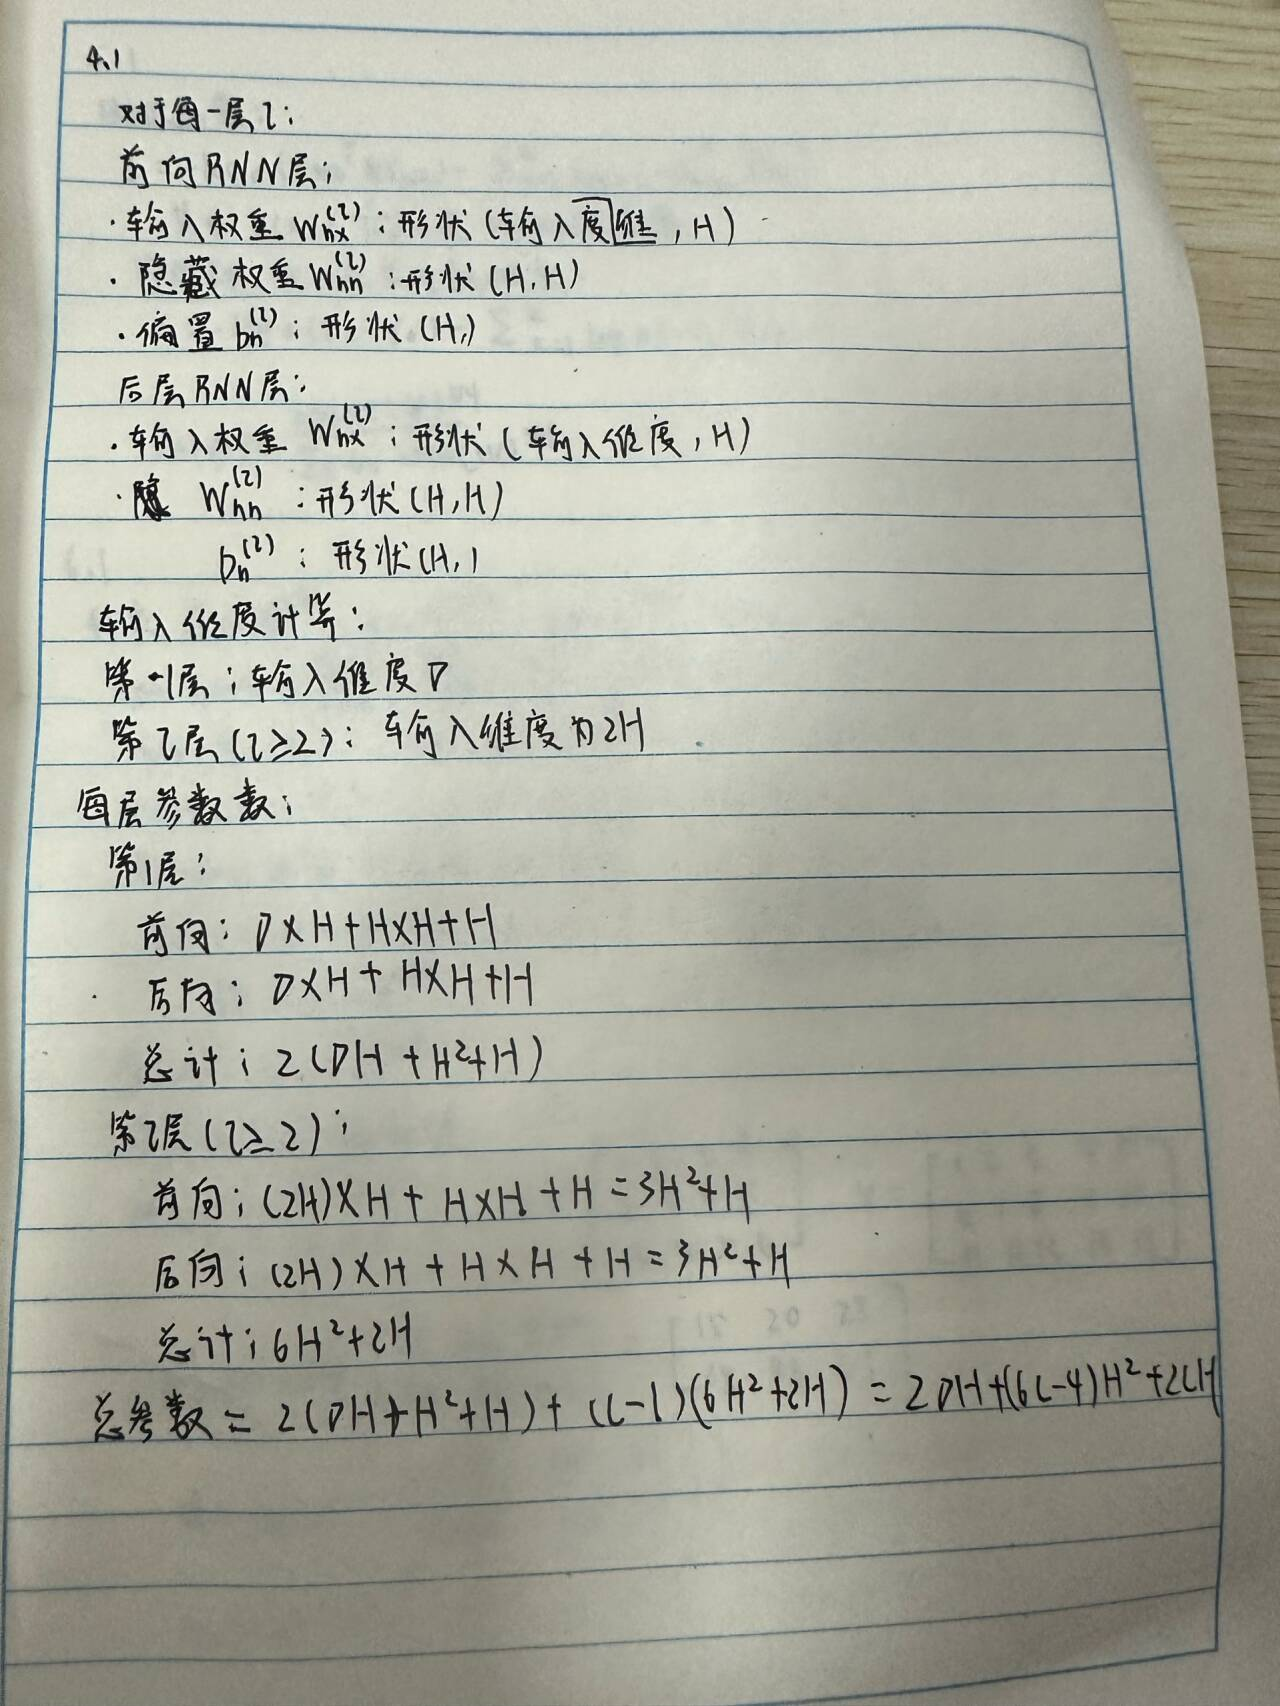 4.1
对于每一层l:
前向RNN层:
·输入权重 W_hx^(l): 形状(输入度维, H)
·隐藏权重 W_hh^(l): 形状(H, H)
·偏置 b_h^(l): 形状(H,)
后层RNN层:
·输入权重 W_hx^(l): 形状(输入维度, H)
·隐 W_hh^(l): 形状(H, H)
b_h^(l): 形状(H,)
输入维度计算:
第一层: 输入维度D
第l层(l≥2): 输入维度为2H
每层参数数:
第1层:
前向: D×H+H×H+H
后向: D×H+H×H+H
总计: 2(DH+H²+H)
第l层(l≥2):
前向: (2H)×H+H×H+H=3H²+H
后向: (2H)×H+H×H+H=3H²+H
总计: 6H²+2H
总参数=2(DH+H²+H)+(L-1)(6H²+2H)=2DH+(6L-4)H²+2LH